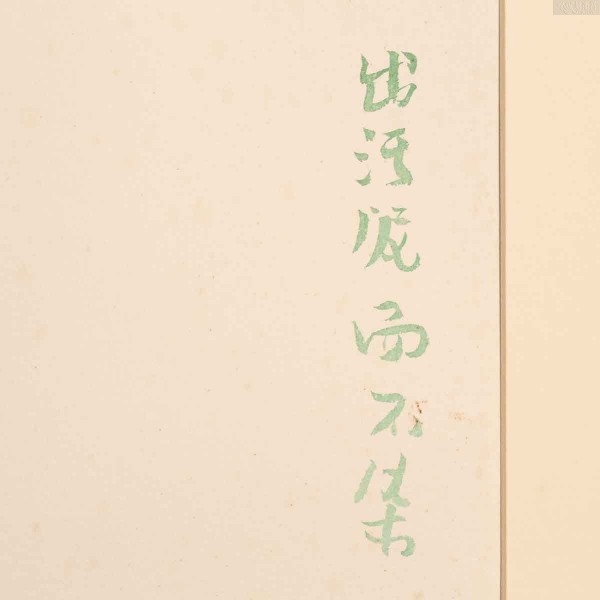 出污泥而不染